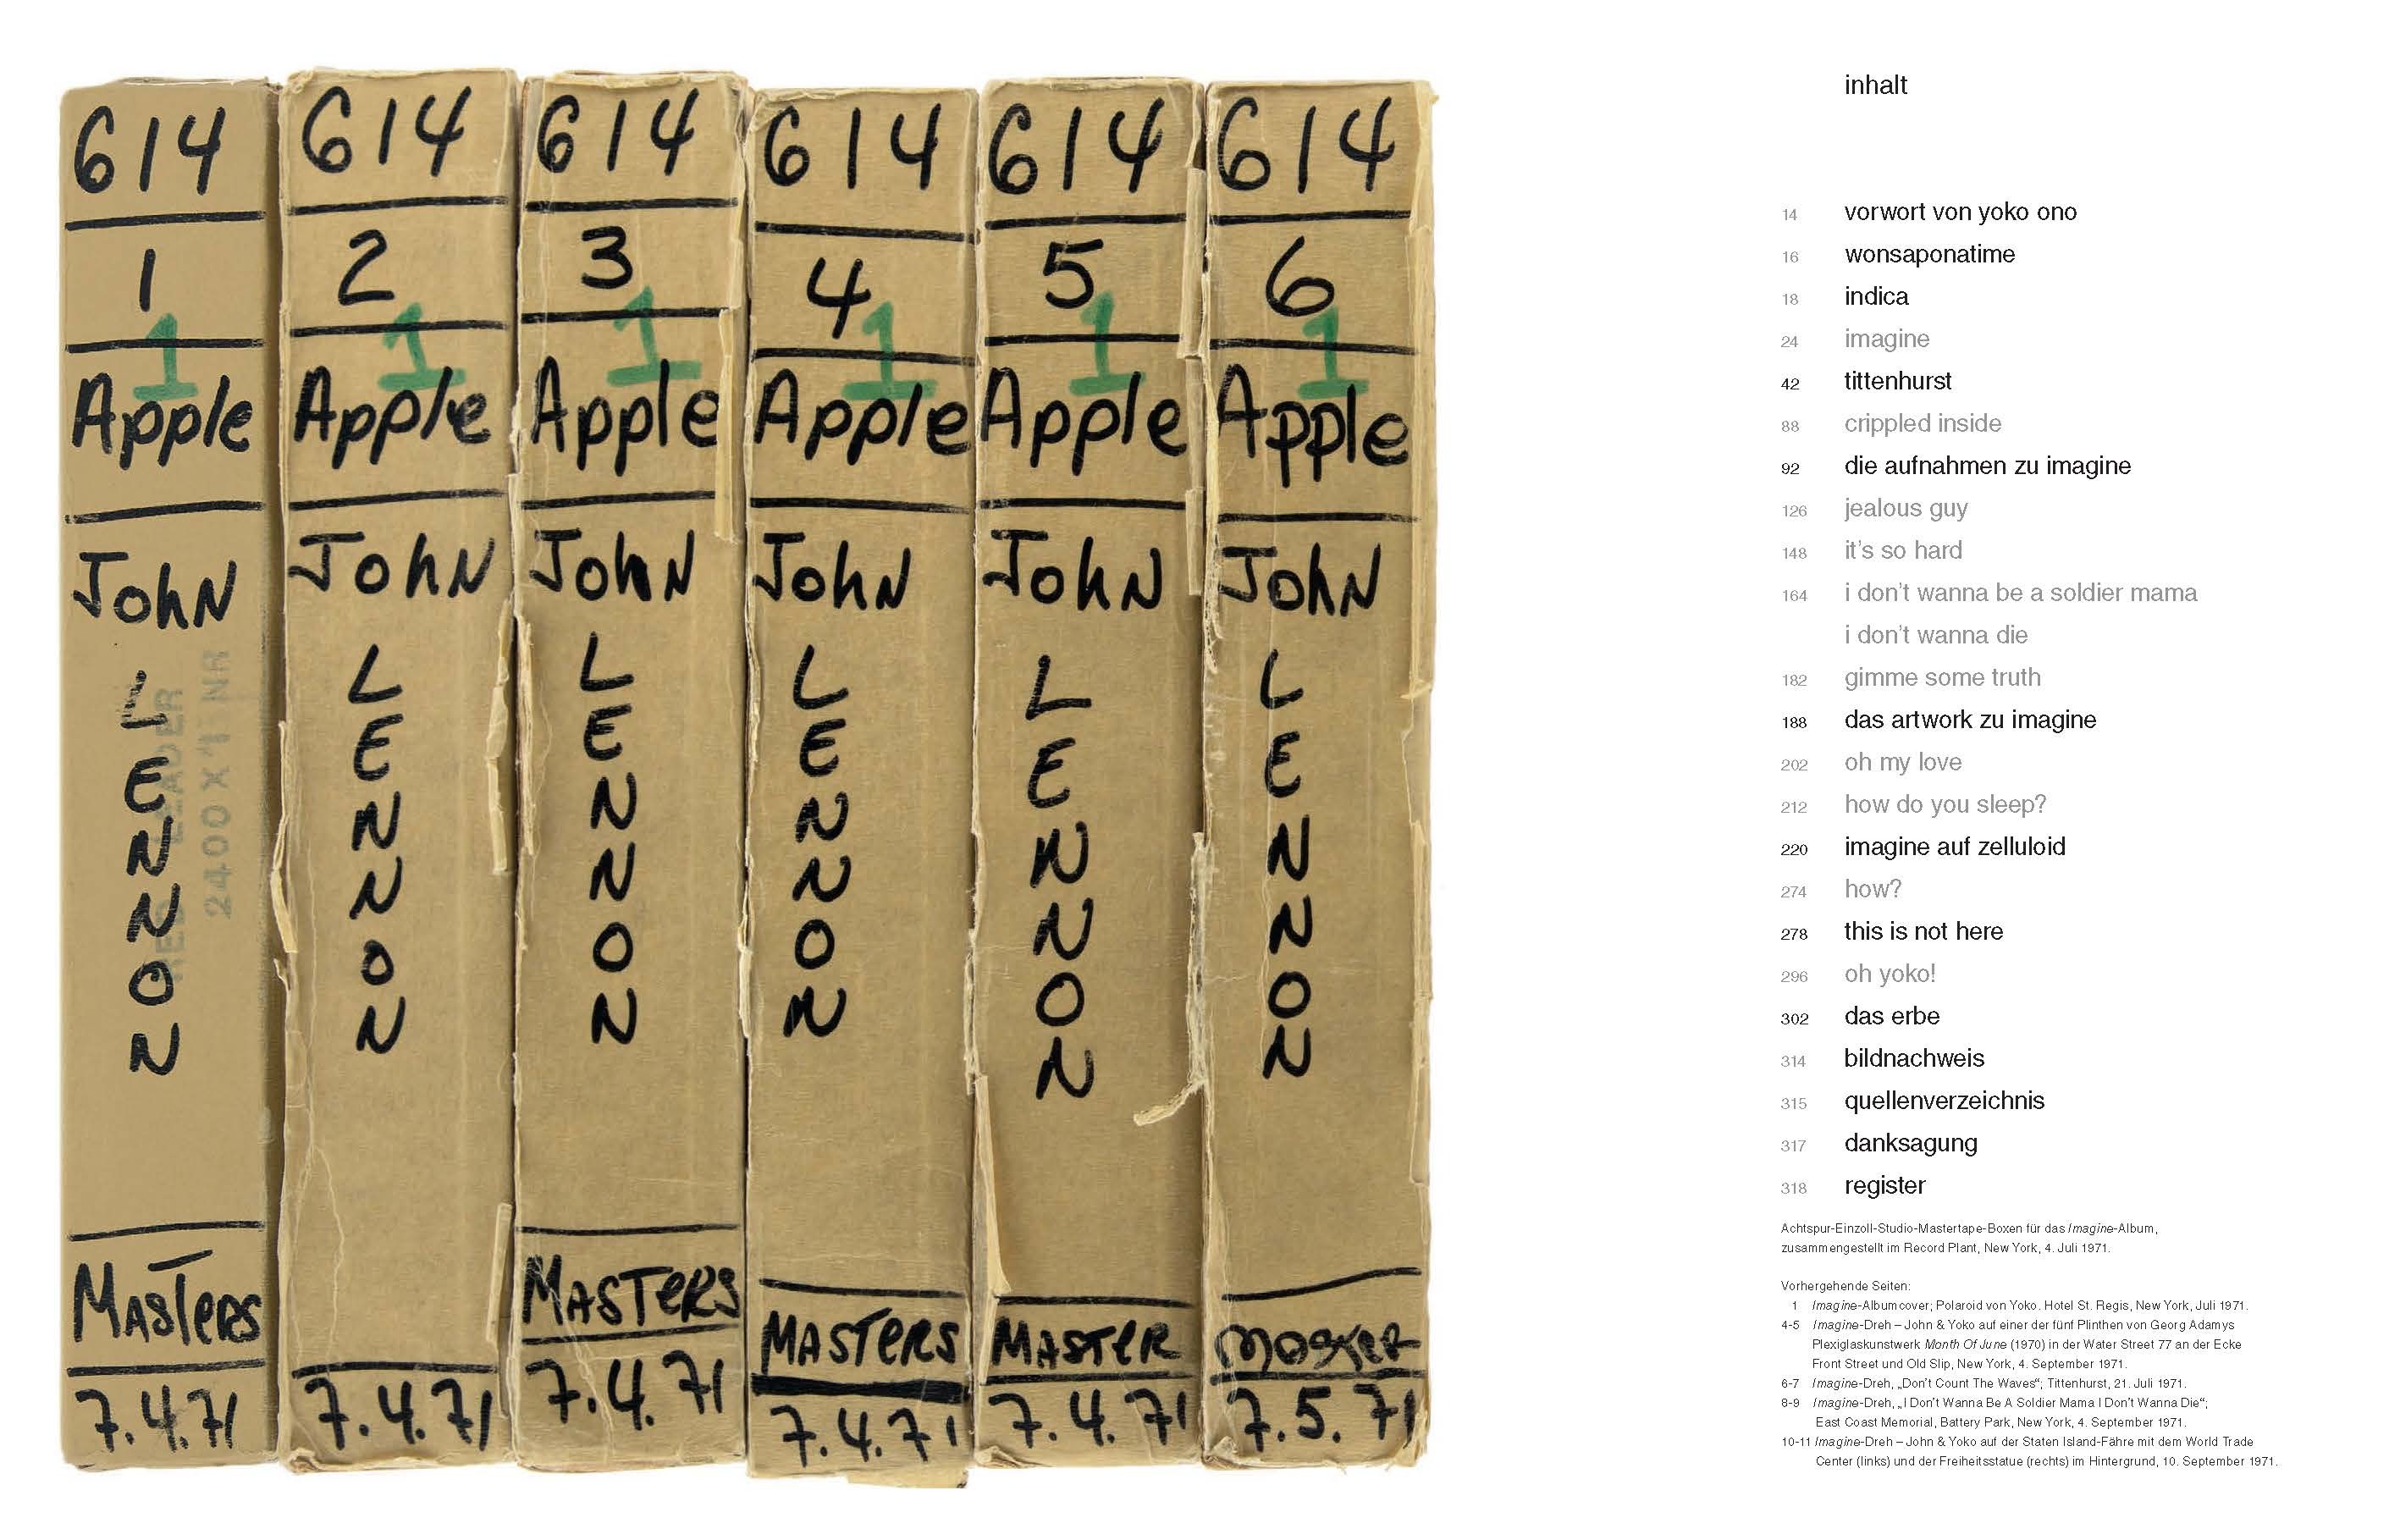 614
1
1
Apple
John
LENNON
RED LEADER
2400 X 1 NR
Masters
7.4.71
614
2
1
Apple
John
LENNON
7.4.71
614
3
1
Apple
John
LENNON
Masters
7.4.71
614
4
1
Apple
John
LENNON
Masters
7.4.71
614
5
1
Apple
John
LENNON
Master
7.4.71
614
6
1
Apple
John
LENNON
7.5.71
inhalt
14 vorwort von yoko ono
16 wonsaponatime
18 indica
24 imagine
42 tittenhurst
88 crippled inside
92 die aufnahmen zu imagine
126 jealous guy
148 it's so hard
164 i don't wanna be a soldier mama
i don't wanna die
182 gimme some truth
188 das artwork zu imagine
202 oh my love
212 how do you sleep?
220 imagine auf zelluloid
274 how?
278 this is not here
296 oh yoko!
302 das erbe
314 bildnachweis
315 quellenverzeichnis
317 danksagung
318 register
Achtspur-Einzoll-Studio-Mastertape-Boxen für das Imagine-Album,
zusammengestellt im Record Plant, New York, 4. Juli 1971.
Vorhergehende Seiten:
1 Imagine-Albumcover; Polaroid von Yoko. Hotel St. Regis, New York, Juli 1971.
4-5 Imagine-Dreh – John & Yoko auf einer der fünf Plinthen von Georg Adamys
Plexiglaskunstwerk Month Of June (1970) in der Water Street 77 an der Ecke
Front Street und Old Slip, New York, 4. September 1971.
6-7 Imagine-Dreh, „Don't Count The Waves“; Tittenhurst, 21. Juli 1971.
8-9 Imagine-Dreh, „I Don't Wanna Be A Soldier Mama I Don't Wanna Die“;
East Coast Memorial, Battery Park, New York, 4. September 1971.
10-11 Imagine-Dreh – John & Yoko auf der Staten Island-Fähre mit dem World Trade
Center (links) und der Freiheitsstatue (rechts) im Hintergrund, 10. September 1971.